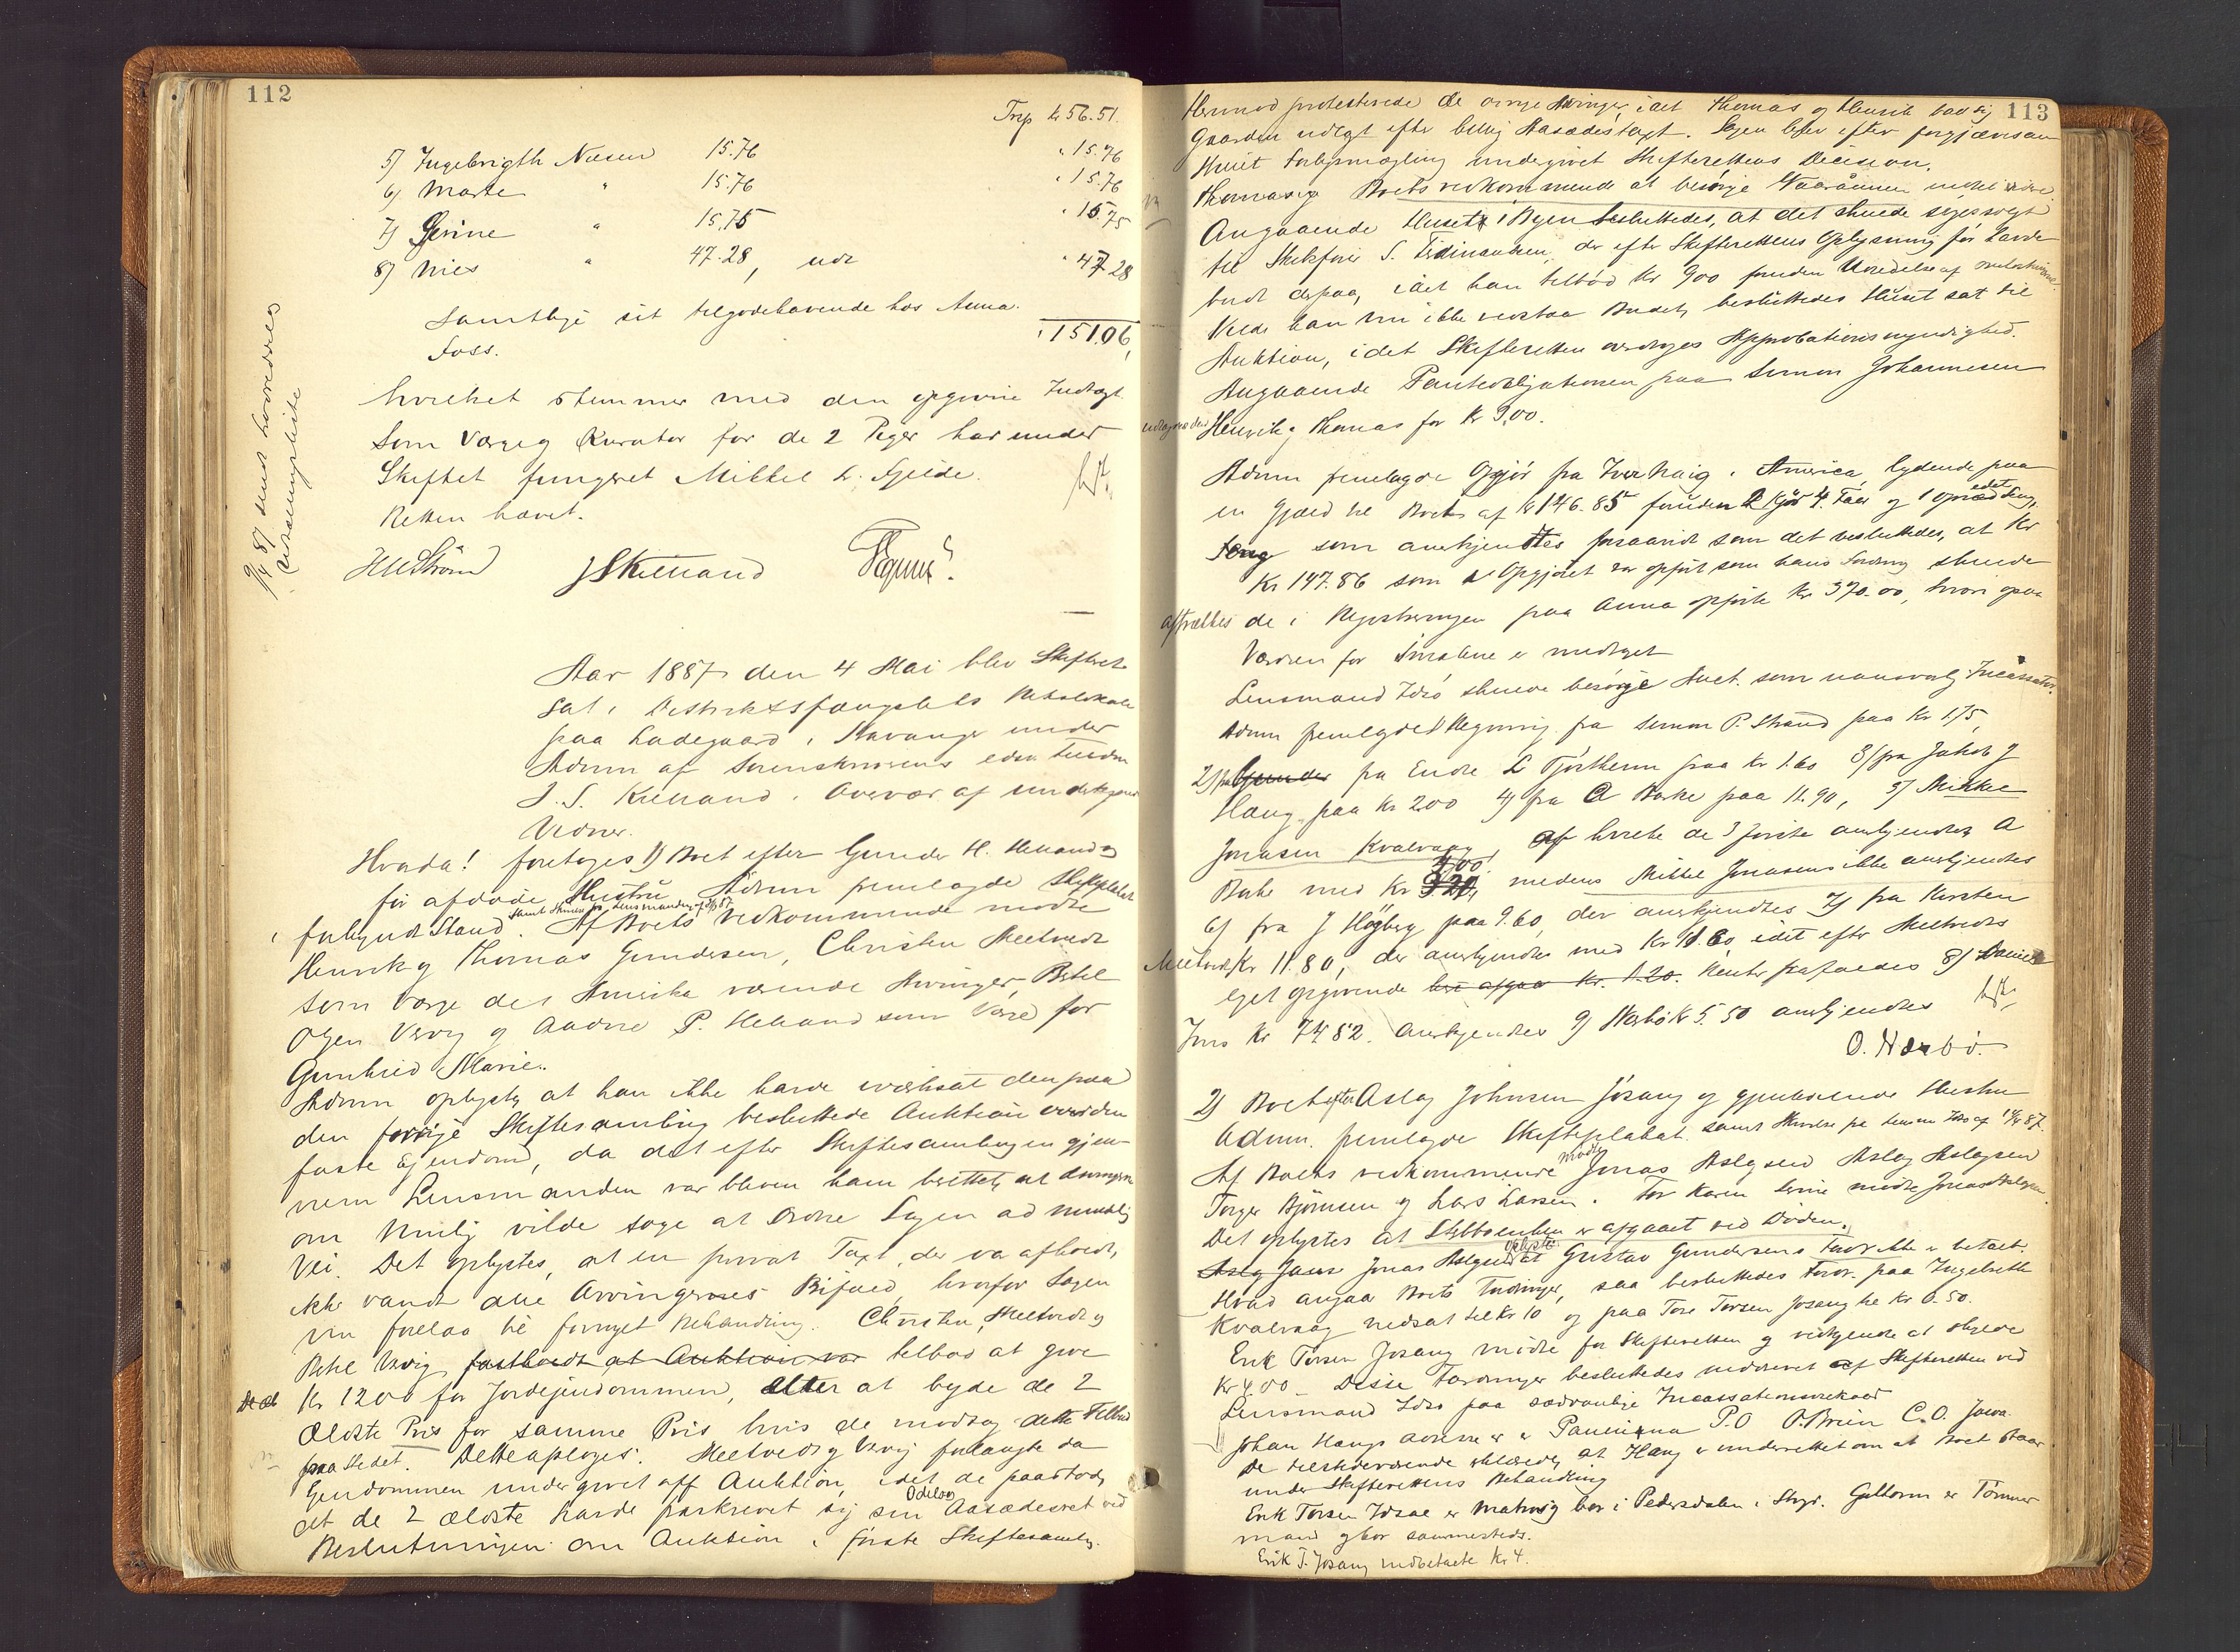 112
Trp kr 56.51.
5) Ingebrigth Nielsen 15.76 " 15.76
6) Marte " 15.76 " 15.76
7) Serine " 15.75 " 15.75
8) Niels " 47.28, udl " 47.28
Samtlige sit tilgodehavende hos Anna
Foss. " 151.06,
hvilket stemmer med den opgivne Indtægt.
Som Værge og Kurator for de 2 Piger har under
Skiftet fungeret Mikkel L. Gjilde.
Retten hævet.
JSKielland
Aar 1887 den 4 Mai blev Skifteret
sat i Distriktsfængslets Retslokale
paa Ladegaard i Stavanger under
Adm af Sorenskriverens edsv
J. S. Kielland i Overvær af undertegnede
Vidner.
Hvorda! foretoges 1) Boet efter Gunder H. Helland og
før afdøde Hustru Adm fremlagde Skifteplakat
samt Skrivelse fra Lensmanden af
forkyndt Stand. Af Boets Vedkommende mødte
Henrik og Thomas Gundersen, Christen Meltvedt
som Værge de i Amerika værende Arvinger, Betel
OlsenVærvig og Aadne P. Helland som Værge for
Gunhild Marie.
Adm oplyste, at han ikke havde iværksat den paa
den forrige Skiftesamling besluttede Auktion over den
faste Ejendom, da det efter Skiftesamlingen gjen-
nem Lensmanden var bleven ham berettet, at Arvingerne
om mulig vilde søge at ordne Sagen ad mindelig
Vei. Det oplystes, at en privat Taxt, der var afholdt,
ikke vandt alle Arvingernes Bifald, hvorfor Sagen
nu forelaa til fornyet Behandling. Christen Meltvedt og
Betel Værvig fastholdt at Auktion var tilbød at give
Kr 1200 for Jordejendommen, eller at byde de 2
Ældste Pris for samme Pris hvis de modtog dette Tilbud
paa Stedet. Dette afsloges. Meltvedt og Værvig forlangte da
Ejendommen undergivet off Auktion, idet de paastod,
Odelsog
at de 2 ældste havde fraskrevet sig sin Aasædesret ved
Beslutningen om Auktion i første Skiftesamling.
113
Hermod protesterede de øvrige Arvinger, idet Thomas og Henrik
Gaarden udlagt efter billig Aasædestaxt. Sagen blev efter forgjæves an
stillet Forligsmægling undergivet Skifterettens Decision.
Thomas paa Boets vedkommende at besørge Vaaraannen
Angaaende Huset i Byen besluttedes, at det skulde søges solgt
til Skibsfører S. Ferdinandsen, der efter Skifterettens Oplysning før havde
budt derpaa, idet han tilbød Kr 900 foruden Udredelse af
Vilde han nu ikke vedstaa Budet, besluttedes Huset sat til
Auktion, idet Skifteretten overdroges Approbationsmyndighed.
Angaaende Panteobligationen paa Simon Johannesen
Henrik og Thomas for Kr 9,00.
Adm fremlagde Opgjør fra Iver Haug i America, lydende paa
en Gjæld til Boet af kr 146.85 foruden 2 Kjør 4 Faar og 1 opredet Seng,
Seng som anerkjendtes forsaavidt som det besluttedes, at Kr
Kr 147.86 som i Opgjøret var opført som hans Fordring skulde
afskrives de i Registreringen paa Anna opførte Kr 370.00, hvori ogsaa
Værdien for Smalene er medtaget
Lensmand Idsø skulde besørge Auct. som uansvarlig Incassator.
Adm fremlagde 1) Regning fra Simon P. Strand paa Kr 1.75,
2) fra Gunder fra Endre L Fjortheim paa Kr 1.60 3) fra Jakob J
Haug paa Kr 2,00 4) fra A Bakke paa 11.90, 5) Mikkel
Jonasen Kvalvaag, af hvilke de 3 første anerkjendtes, A
4,00
Bakke med Kr 3.20, medens Mikkel Jonasens ikke anerkjendtes
6) fra J Högberg paa 9.60, der anerkjendtes 7) fra Kirsten
Meltvedt Kr 11.80, der anerkjendtes med Kr 10.60, idet efter Meltvedts
eget opgivende bør afgaa Kr. 1.20. Renter frafaldes 8) Daniel
Jens Kr 74.82. anerkjendtes 9) Nærbø Kr 5.50 anerkjendtes
O. Nærbø.
2) Boet efter Aslag Johnsen Jösang og gjenlevende Hustru
Adm. fremlagde Skifteplakat. samt Skrivelse fra Lensm Idsø af
Af Boets vedkommende mødte Jonas Aslagsen Aslag Aslagsen
Torger Bjørnsen og Lars Larsen. For Karen Serine mødte Jonas Aslagsen.
Det oplystes at Stedbørnene er afgaaet ved Døden.
Aslg Jans Jonas Aslagsen oplyste at Gustav Gundersens Fordr ikke er betalt.
Hvad angaar Boets Fordringer, saa besluttedes Fordr. paa Ingebreth
Kvalvaag nedsat til Kr 10 og paa Tore Torsen Josang til Kr 6.50.
Erik Torsen Josang mødte for Skifteretten og vedkjendte at skylde
Kr 4.00 – Disse Fordringer besluttedes inddrevet af Skifteretten ved
Lensmand Idsø paa sædvanlige Incassationsvilkaar
Johan Haugs adresse er Paulina P.O O'Brien C.O. Jowa
De tilstedeværende erklærede, at Haug er underrettet om at Boet staar
under Skifterettens Behandling
Erik Torsen Idsøe er Matros og bor i Pedersdalen i Stvgr. Guttorm er Tømmer
mand og bor sammesteds.
Erik T. Josang indbetalte Kr 4.